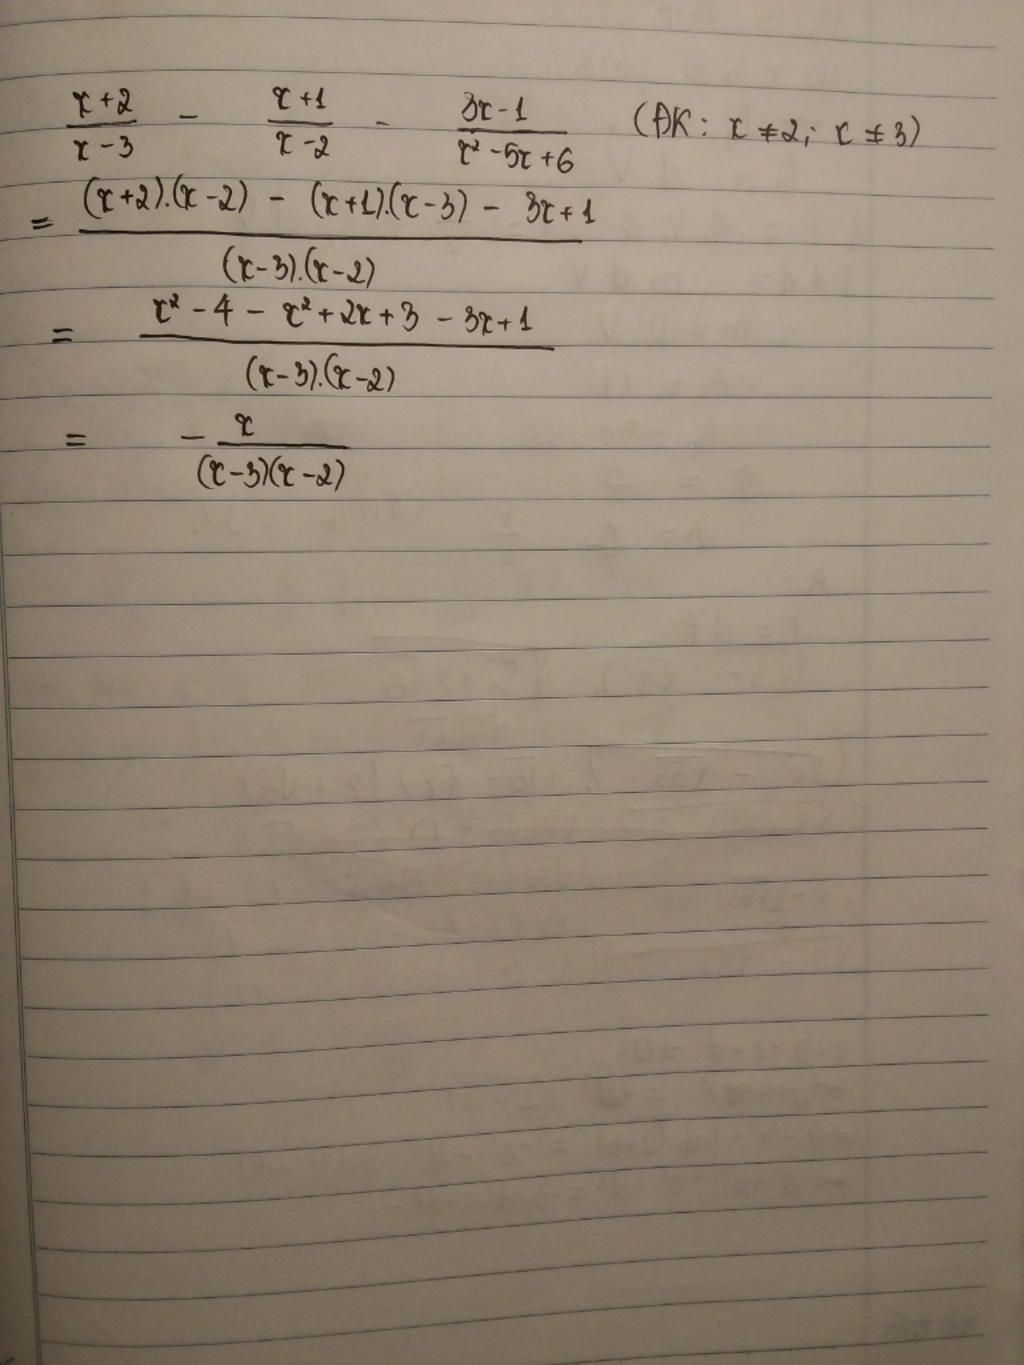 x+2/x-3 - x+1/x-2 - 3x-1/x²-5x+6 (ĐK: x ≠ 2; x ≠ 3)
= (x+2).(x-2) - (x+1).(x-3) - 3x+1/(x-3).(x-2)
= x²-4-x²+2x+3-3x+1/(x-3).(x-2)
= - x/(x-3)(x-2)